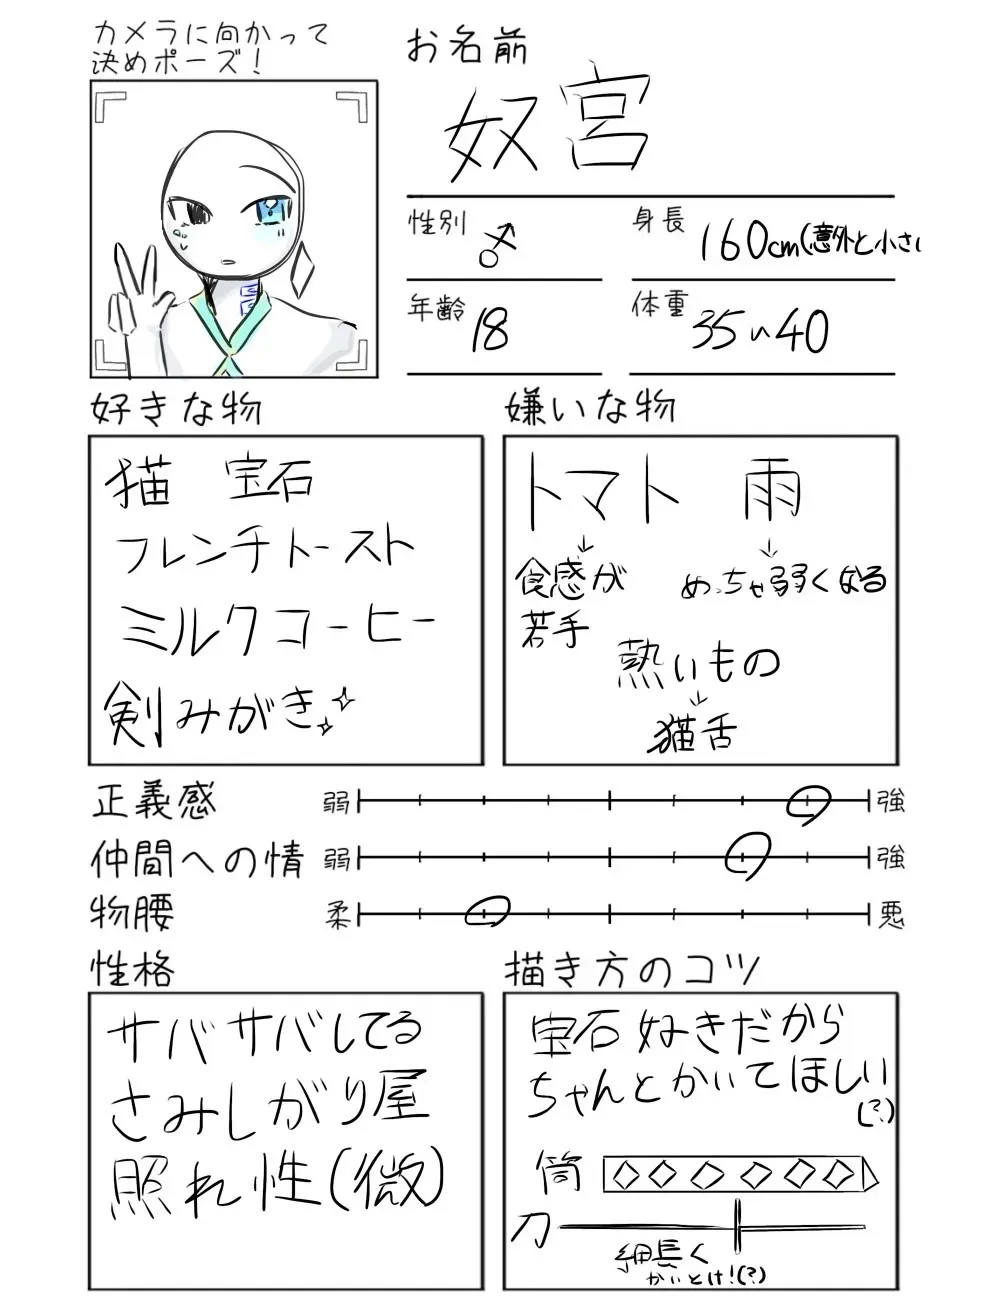 カメラに向かって
決めポーズ!
お名前
奴宮
性別
♂
身長
160cm(意外と小さい
年齢
18
体重
35~40
好きな物
猫 宝石
フレンチトースト
ミルクコーヒー
剣みがき
嫌いな物
トマト 雨
食感が
若手
めっちゃ弱くなる
熱いもの
猫舌
正義感 弱 強
仲間への情 弱 強
物腰 柔 悪
性格
サバサバしてる
さみしがり屋
照れ性(微)
描き方のコツ
宝石好きだから
ちゃんとかいてほしい
(?)
筒
刀
細長く
かいとけ!(?)